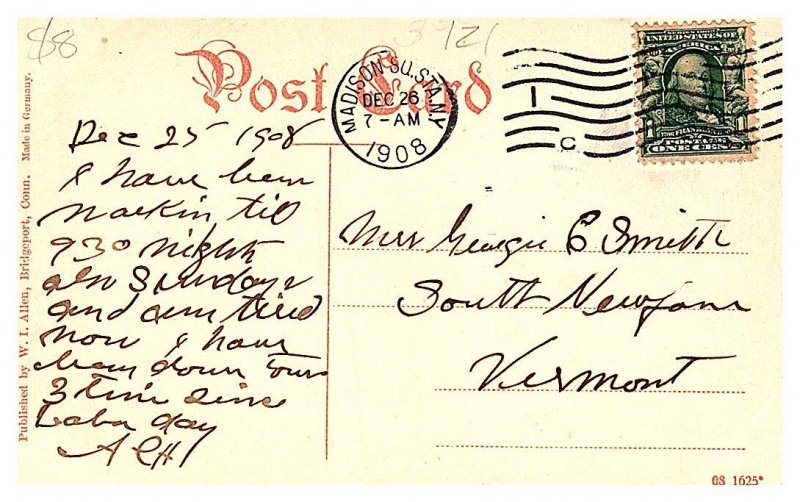 88
3421
Post Card
MADISON SQ. STA. N.Y.
DEC 26
7-AM
1908
1
C
SERIES 1902
UNITED STATES OF
AMERICA
FRANKLIN
POSTAGE
ONE CENT
Dec 25 1908
I have been
workin til
930 night
also Sundays
and am tired
now I have
been down Town
3 time since
Labor day
Mrs Georgie E Smith
South Newfane
Vermont
Published by W. I. Allen, Bridgeport, Conn. Made in Germany.
08 1625*